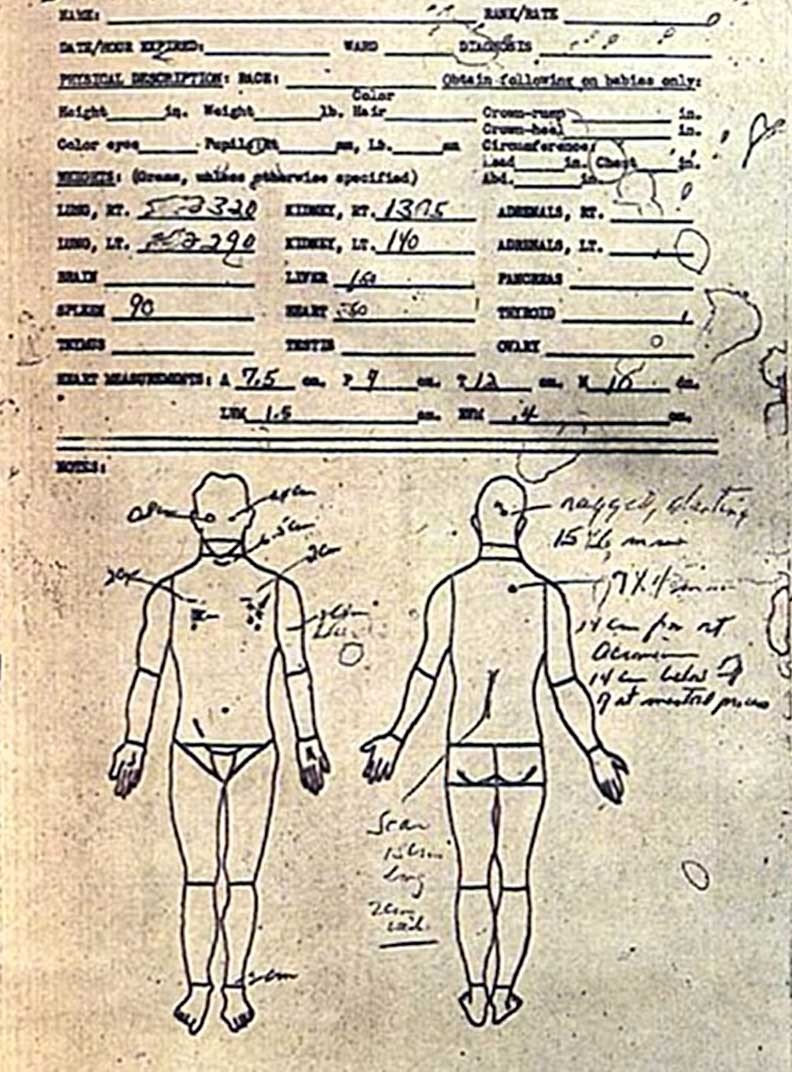 NAME: RANK/RATE
DATE/HOUR EXPIRED: WARD DIAGNOSIS
PHYSICAL DESCRIPTION: RACE: Obtain following on babies only:
Color
Height in. Weight lb. Hair Crown-rump in.
Crown-heel in.
Color eyes Pupil: Rt mm, Lt. mm Circumference:
Head in. Chest in.
Abd. in.
WEIGHTS: (Grams, unless otherwise specified)
LUNG, RT. 320 KIDNEY, RT. ADRENALS, RT.
LUNG, LT. 290 KIDNEY, LT. 140 ADRENALS, LT.
BRAIN LIVER PANCREAS
SPLEEN 90 HEART THYROID
THYMUS TESTIS OVARY
HEART MEASUREMENTS: A 7.5 cm. P 7 cm. T 12 cm. M 10 cm.
LVM 1.5 cm. RVM .4 cm.
NOTES:
ragged, slanting
15 x 6 mm
7 x 4 mm
14 cm from rt
acromion
14 cm below
rt mastoid process
2 cm
2 cm
Scar
long